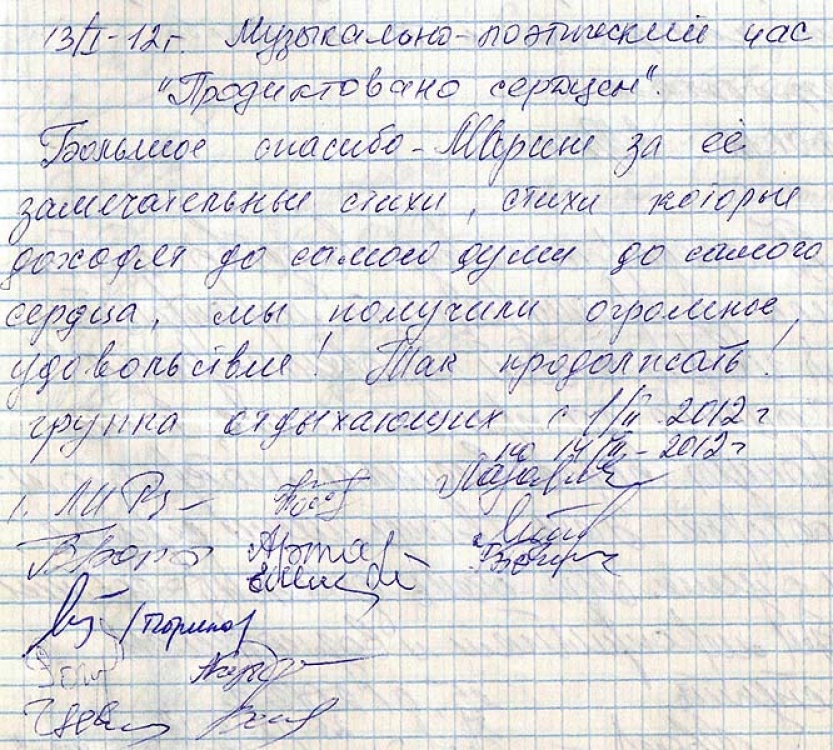 13/II-12г. Музыкально-поэтический час
"Продиктовано сердцем".
Большое спасибо - Марине за её
замечательные стихи, стихи которые
доходят до самой души до самого
сердца, мы получили огромное
удовольствие! Так продолжать!
группа отдыхающих с 1/II 2012 г
по 14/II - 2012 г
1.